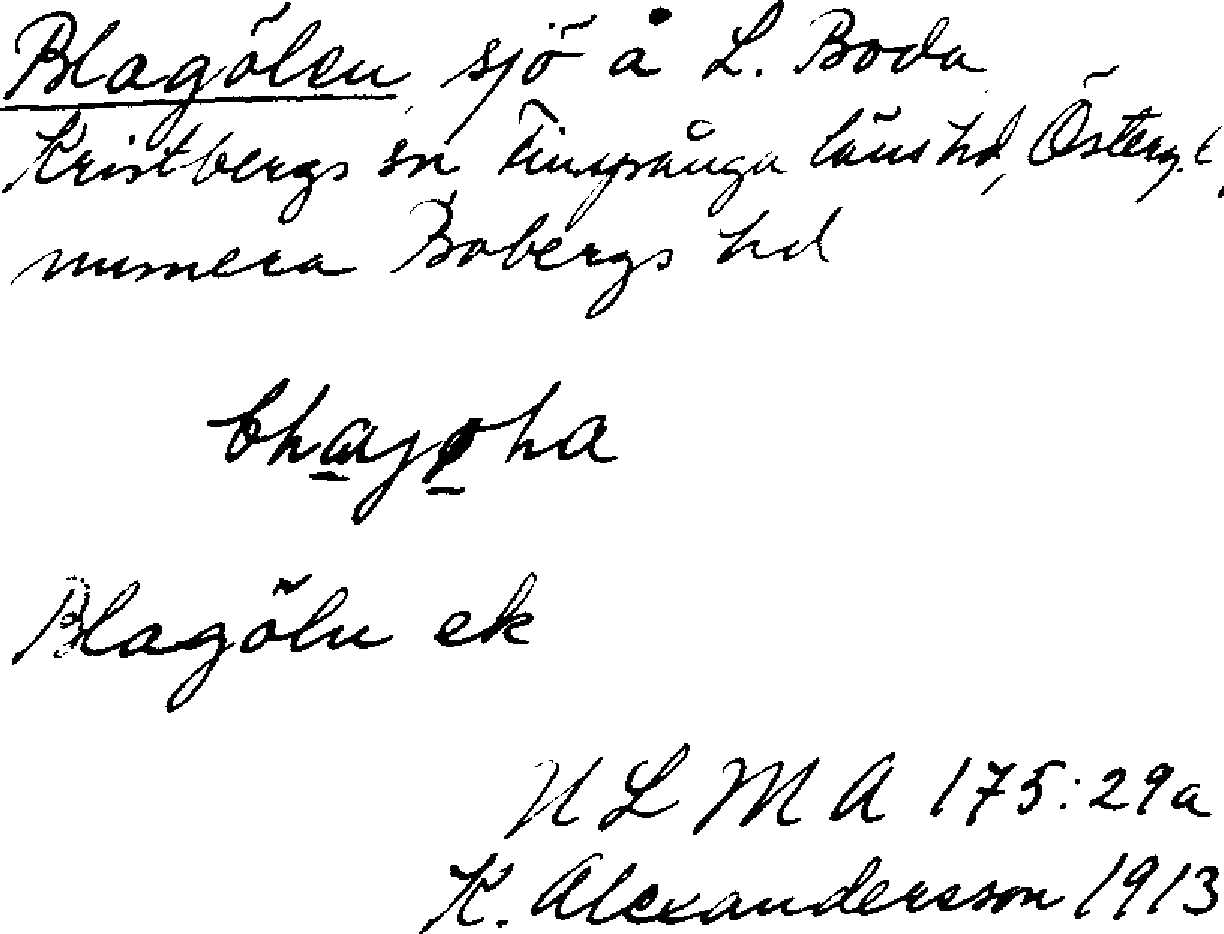 Blagölen, sjö å L. Boda
Kristbergs sn Finspånga läns hd, Österg.l,
numera Bobergs hd
Blagöln ek
ULMA 175:29a
K. Alexandersson 1913